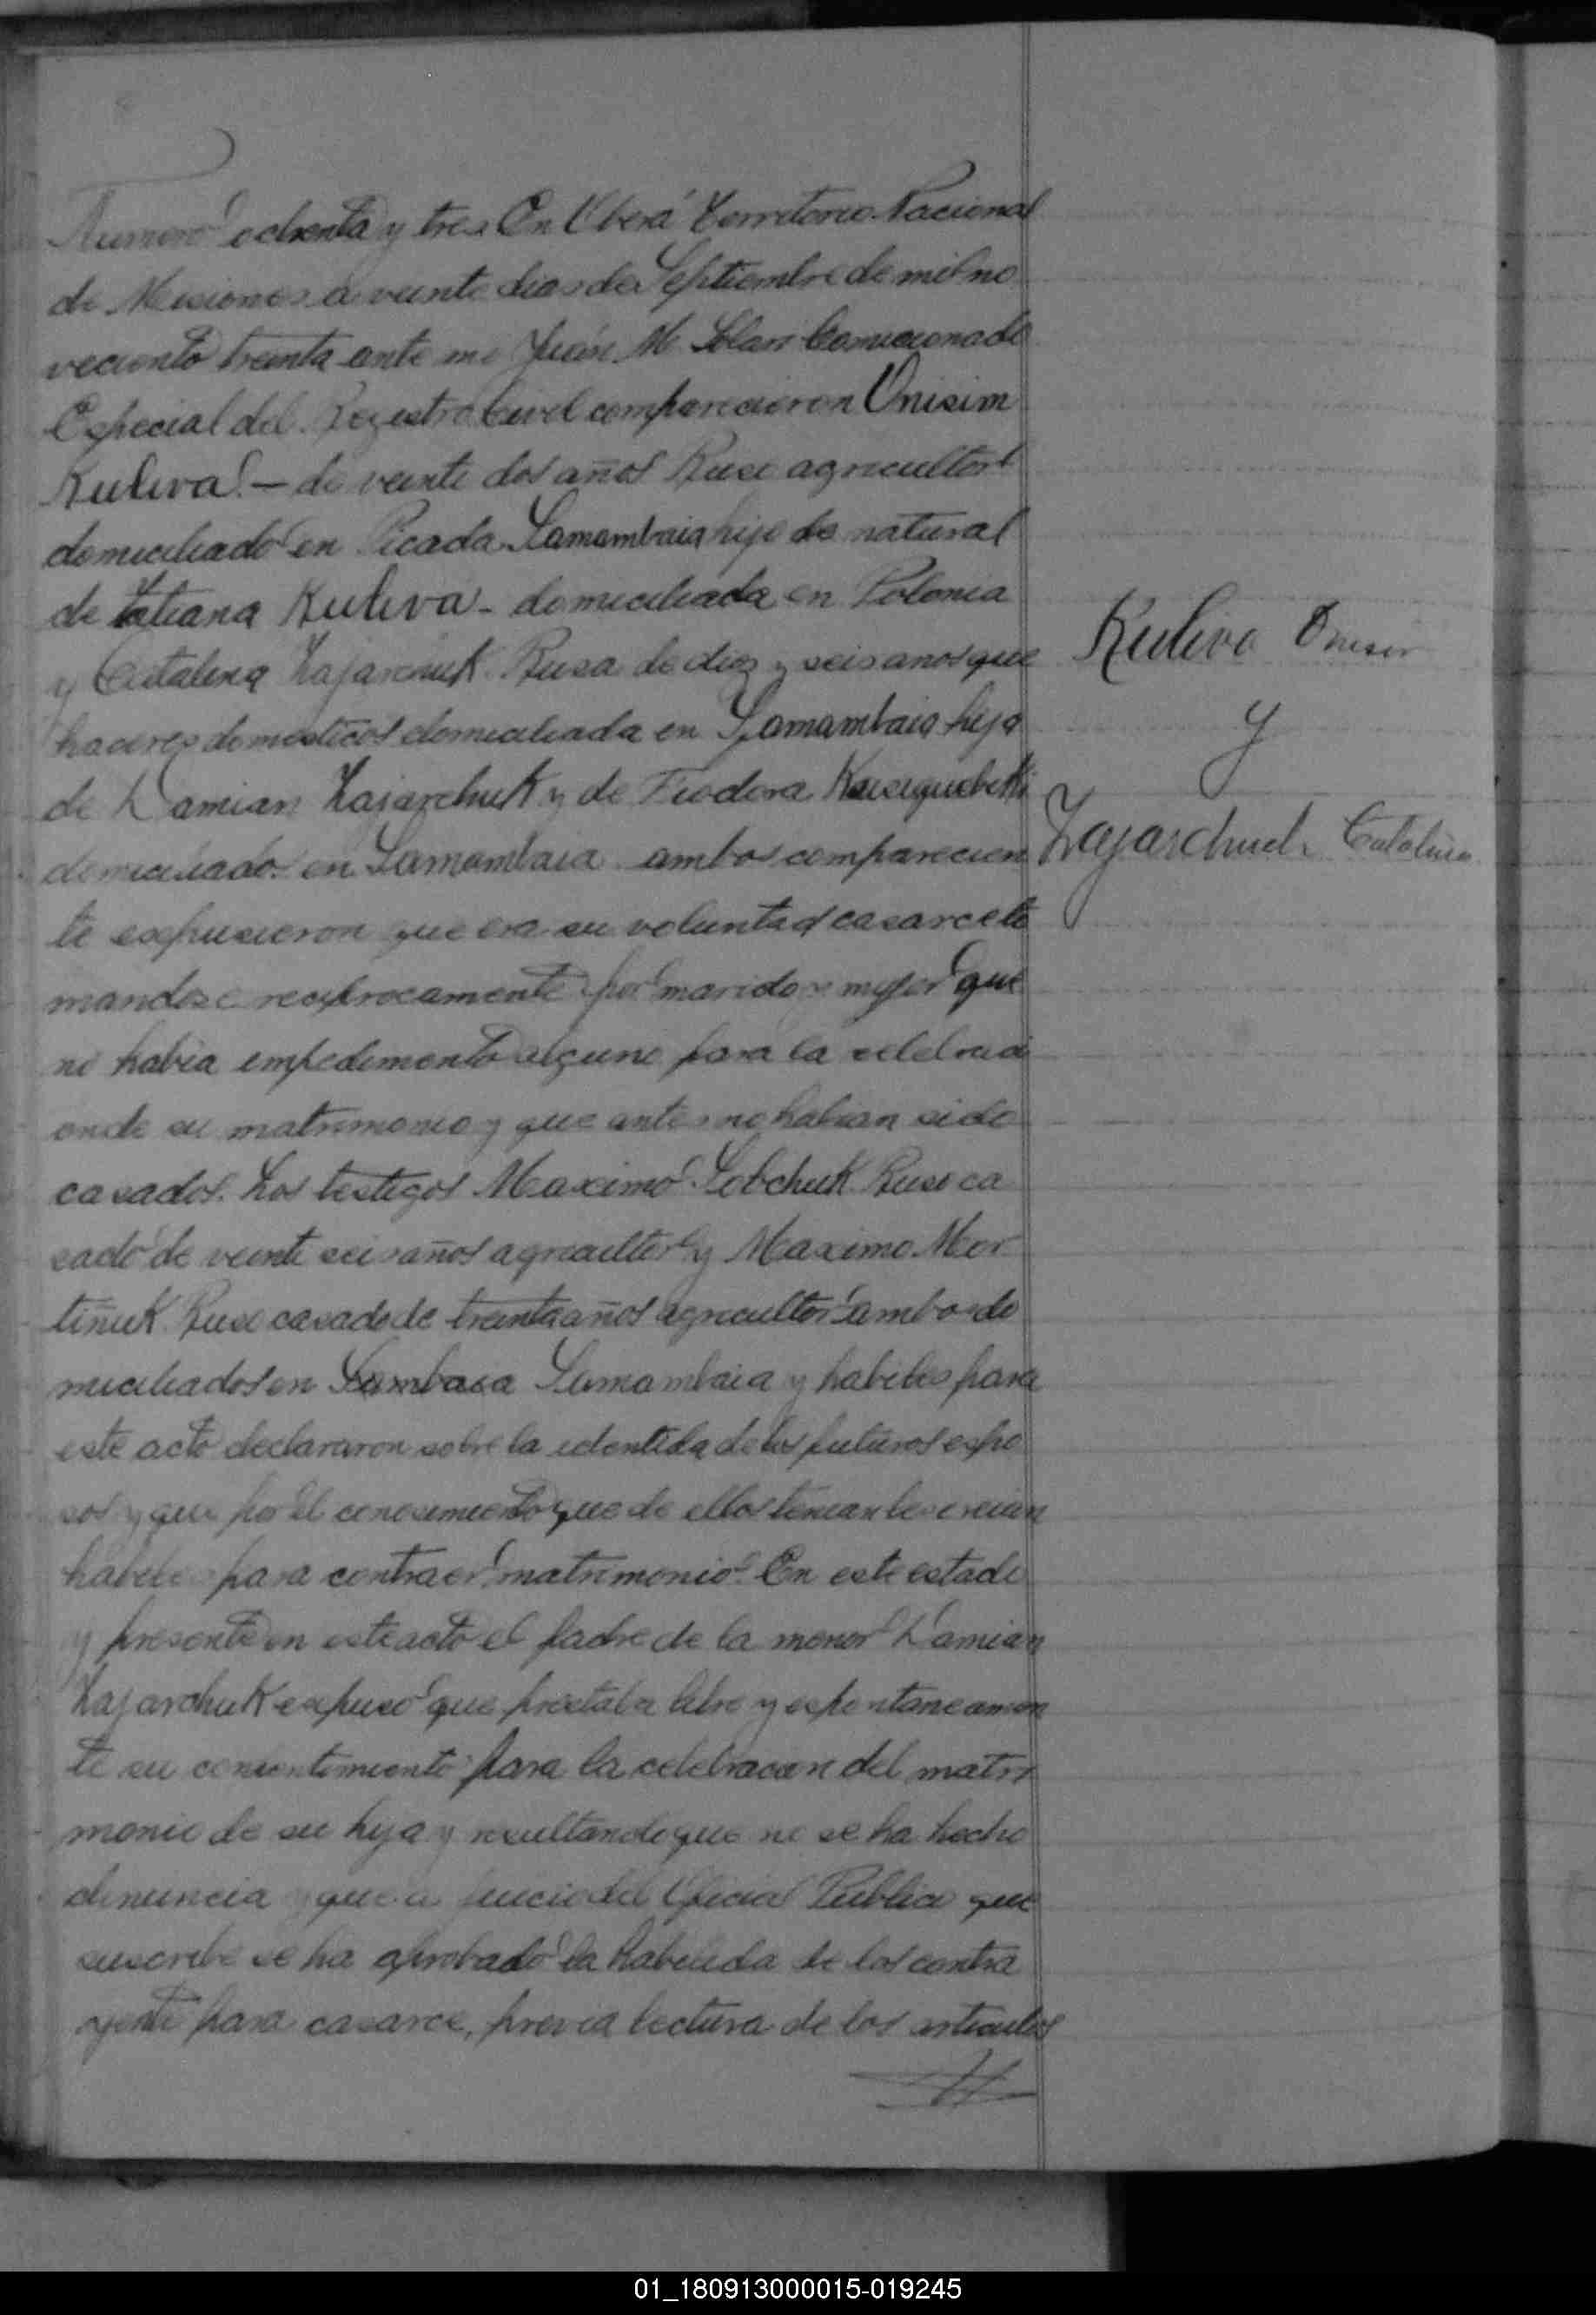 Numero ochenta y tres En Oberá Territorio Nacional
de Misiones a veinte dias de Septiembre de mil no
veciento treinta ante mi Juán M. Solari Comicionado
Especial del Registro Civil comparecieron Onisim
Kuliva. — de veinte dos años Ruso agricultor
domiciliado en Picada Samambaia hijo de natural
de Tatiana Kuliva - domiciliada en Polonia
y Catalina Zajarchuk Rusa de diez y seis anos que
haceres domesticos domiciliada en Samambaia hija
de Damian Zajarchuk y de Fiodora
domiciliados en Samambaia ambos comparecien
te expusieron que era su voluntad casarce to
mandose reciprocamente por marido y mujer que
no habia empedimento alguno para la celebraci
on de su matrimonio y que antes no habian sido
casados. Los testigos Maximo Sobchuk Ruso ca
sado de veinte seis años agricultor y Maximo Mar
tiñuk Ruso casado de treinta años agricultor ambos do
miciliados en Sambaia Samambaia y habiles para
este acto declararon sobre la identida de los futuros espo
sos y que por el conosimiento que de ellos tenian los creian
habiles para contraer matrimonio. En este estado
y presente en este acto el padre de la menor Damian
Zajarchuk expuso que prestaba libre y espontaneamen
te su consentimiento para la celebracion del matri
monio de su hija y resultando que no se ha hecho
denuncia y que a juicio del Oficial Publico que
suscribe se ha aprobado la habilida de los contra
yente para casarce, previa lectura de los articulos
Kuliva Onisim
y
Zajarchuk Catalina
01_180913000015-019245